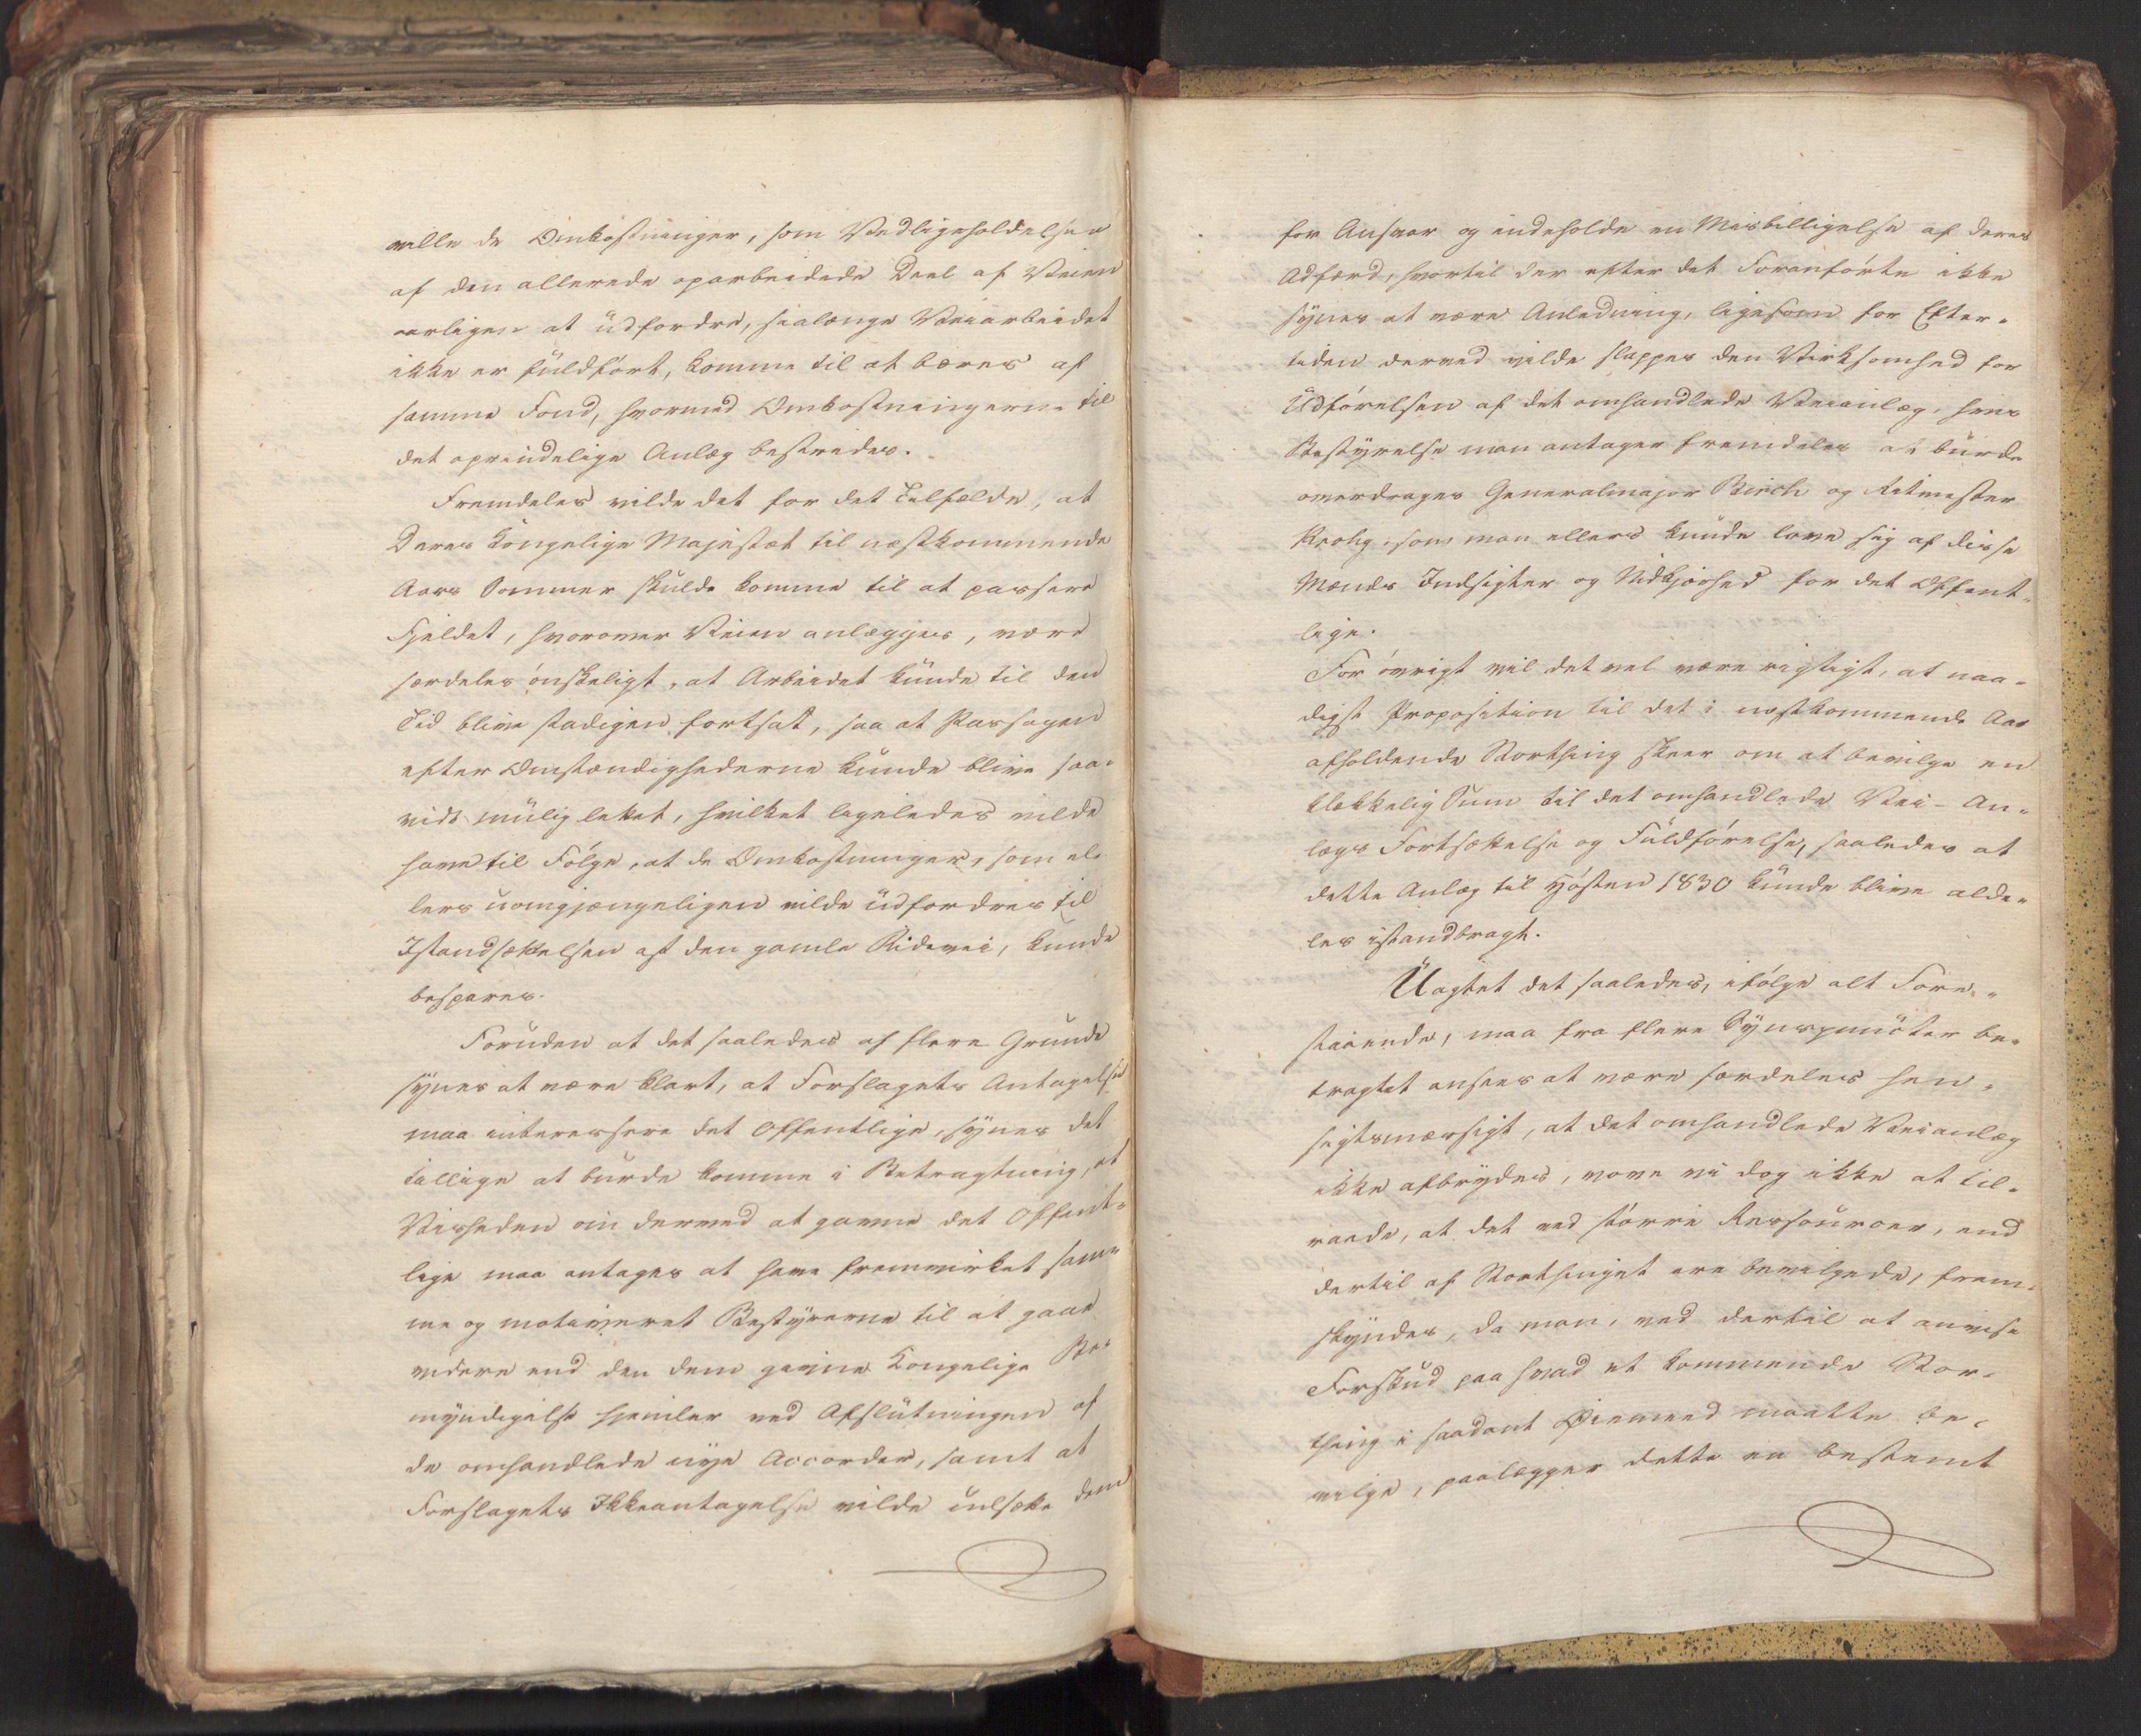 ville de Omkostninger, som Vedligeholdelsen
af den allerede oparbeidede Deel af Veien
aarligen at udfordre, saalænge Veiarbeidet
ikke er fuldført, komme til at bæres af
samme Fond, hvormed Omkostningerne til
det oprindelige Anlæg bestrides.
Fremdeles vilde det for det Tilfælde, at
Deres Kongelige Majestæt til næstkommende
Aars Sommer skulde komme til at passere
Fjeldet, hvorover Veien anlægges, være
særdeles ønskeligt, at Arbeidet kunde til den
Tid blive stadigen fortsat, saa at Passagen
efter Omstændighederne kunde blive saa-
vidt mulig lettet, hvilket ligeledes vilde
have til Følge, at de Omkostninger, som el-
lers uomgjængeligen vilde udfordres til
Istandsættelsen af den gamle Ridevei, kunde
bespares.
Foruden at det saaledes af flere Grunde
synes at være klart, at Forslagets Antagelse
maa interessere det Offentlige, synes det
tillige at burde komme i Betragtning, at
Visheden om derved at gavne det Offent-
lige maa antages at have fremvirket sam-
me og motiveret Bestyrerne til at gaae
videre end den dem givne Kongelige Be-
myndigelse hjemler ved Afslutningen af
de omhandlede nye Accorder, samt at
Forslagets Ikkeantagelse vilde udsætte dem
for Ansvar og indeholde en Misbilligelse af deres
Adfærd, hvortil der efter det Foranførte ikke
synes at være Anledning, ligesom for Efter-
tiden derved vilde slappes den Virksomhed for
Udførelsen af det omhandlede Veianlæg, hvis
Bestyrelse man antager fremdeles at burde
overdrages Generalmajor Birch og Ritmester
Krohg, som man ellers kunde love sig af disse
Mænds Indsigter og Nidkjærhed for det Offent-
lige.
For øvrigt vil det vel være rigtigt, at naa-
digst Proposition til det i næstkommende Aar
afholdende Storthing skeer om at bevilge en
klækkelig Sum til det omhandlede Vei-An-
lægs Fortsættelse og Fuldførelse, saaledes at
dette Anlæg til Høsten 1830 kunde blive alde-
les istandbragt.
Uagtet det saaledes, ifølge alt Fore-
staaende, maa fra flere Synspuncter be-
tragtet ansees at være særdeles hen-
sigtsmæssigt, at det omhandlede Veianlæg
ikke afbrydes, vove vi dog ikke at til-
raade, at det ved større Ressourcer, end
dertil af Storthinget ere bevilgede, frem-
skyndes, da man, ved dertil at anvise
Forskud paa hvad et kommende Stor-
thing i saadant Øiemeed maatte be-
vilge, paalægger dette en bestemt